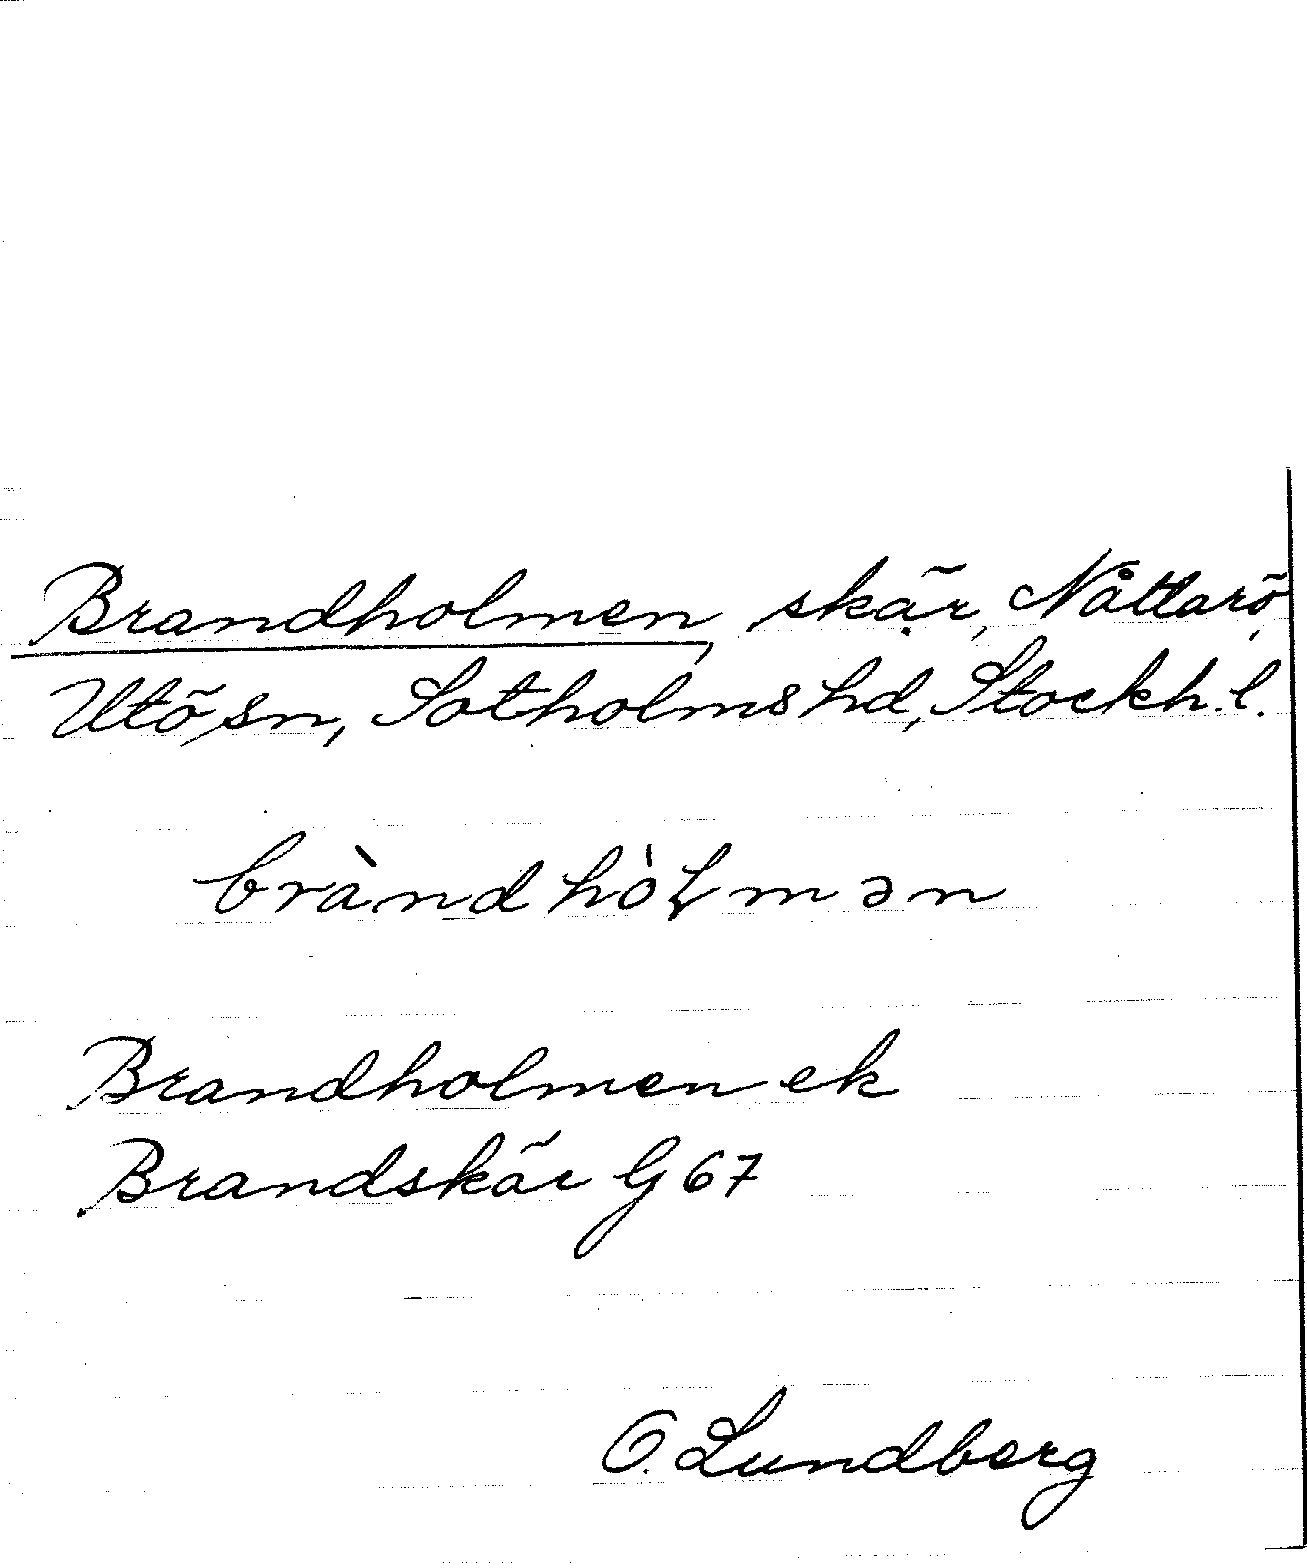 Brandholmen, skär, Nåttarö,
Utö sn, Sotholms hd, Stockh. l.
bràndhòɫmən
Brandholmen ek
Brandskär G 67
O. Lundberg